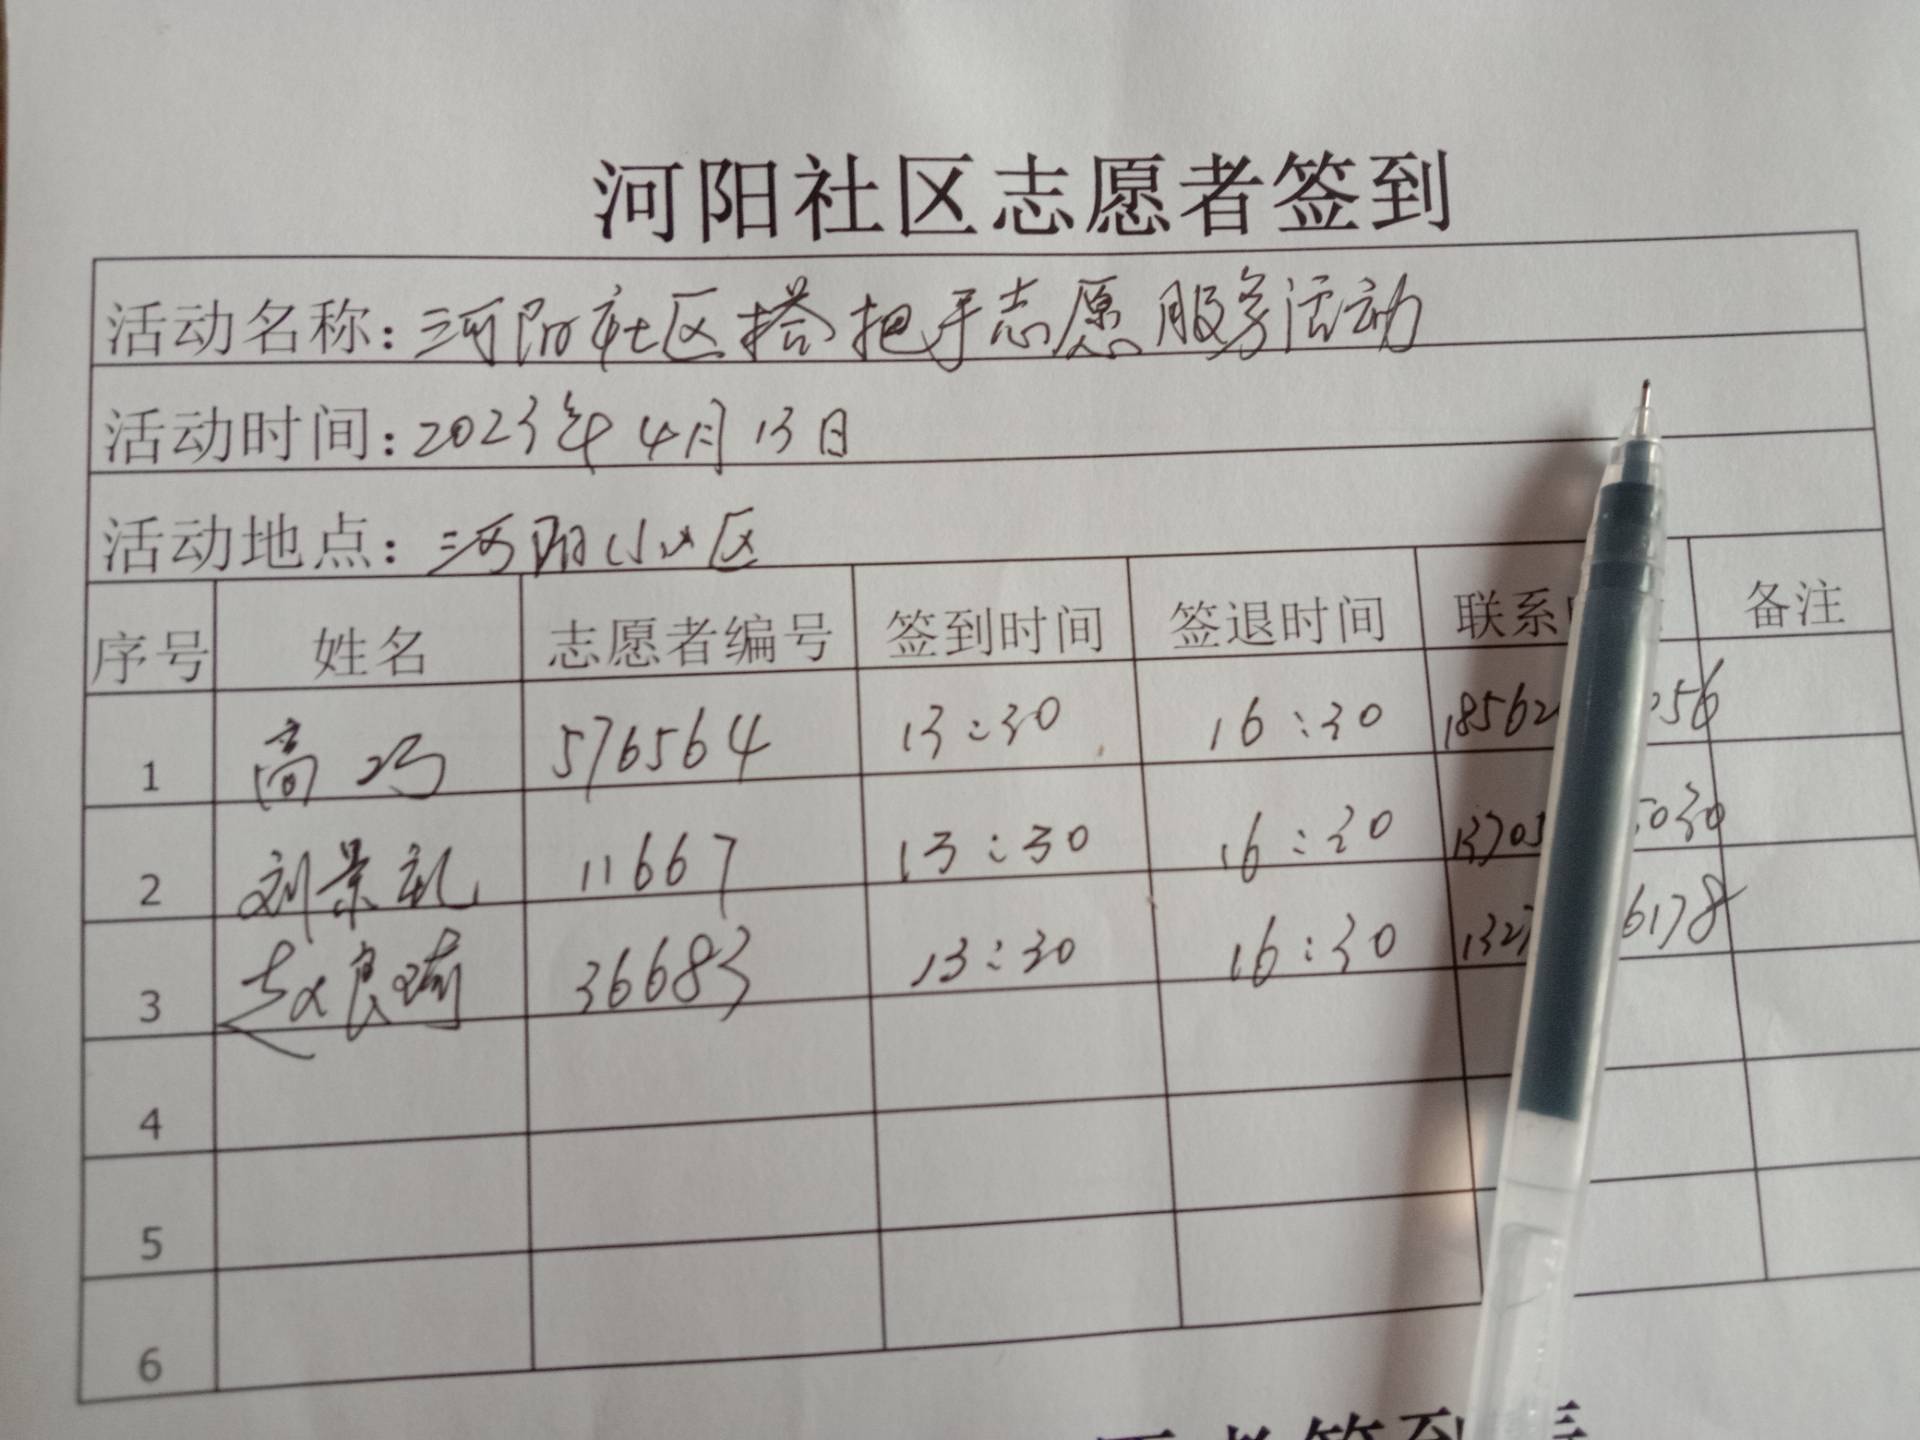 河阳社区志愿者签到
活动名称：河阳社区搭把手志愿服务活动
活动时间：2023年4月13日
活动地点：河阳小区
序号 姓名 志愿者编号 签到时间 签退时间 联系 备注
1 高巧 576564 13:30 16:30 18562 056
2 刘景礼 11667 13:30 16:30 13703 5030
3 赵良琦 36683 13:30 16:30 1327 6178
4
5
6
者签到